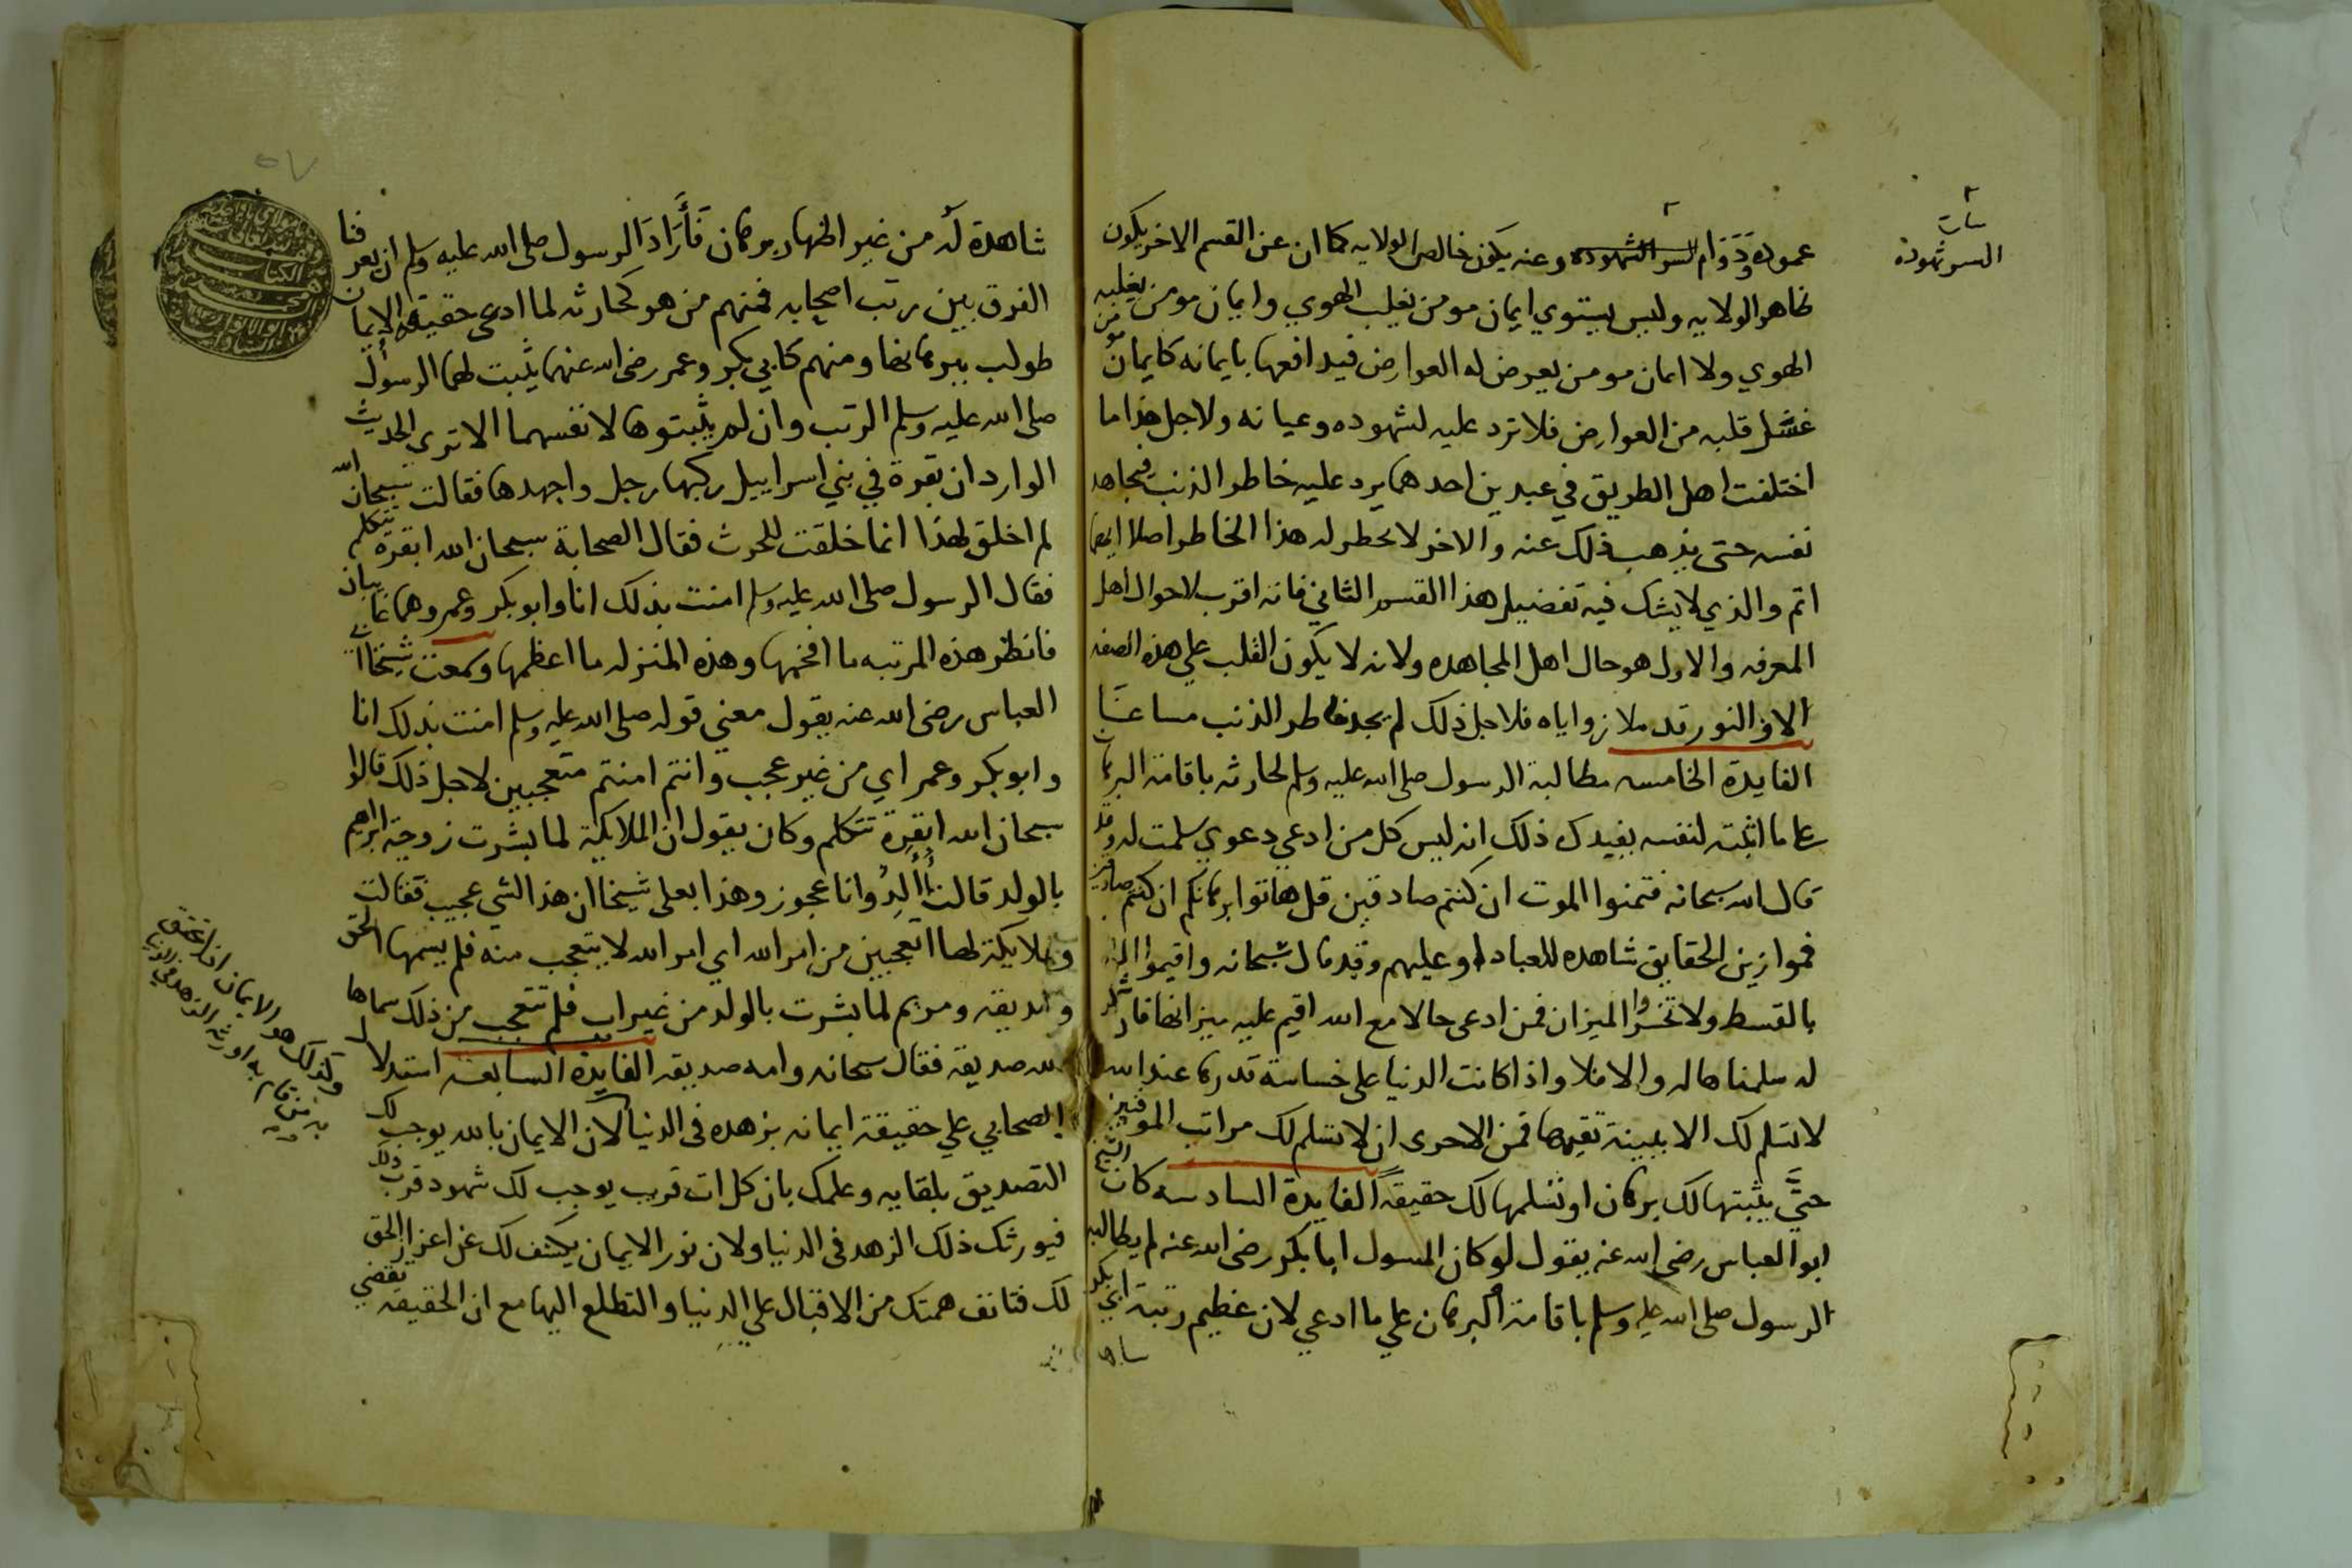 عموده ودوام السر الشهوده وعنه يكون خالص الولايه كما ان عن القسم الاخر يكون
ظاهر الولايه وليس يستوي ايمان مومن يغلب الهوي وايمان مومن يغلبه
الهوي ولا ايمان مومن يعرض له العوارض فيدافعها بايمانه كايمان مومن
غسل قلبه من العوارض فلا ترد عليه لشهوده وعيانه ولاجل هذا ما
اختلفت اهل الطريق في عبدين احدهما يرد عليه خاطر الذنب فيجاهد
نفسه حتى يذهب ذلك عنه والاخر لا يخطر له هذا الخاطر اصلا ايهما
اتم والذي لا يشك فيه تفضيل هذا القسم الثاني فانه اقرب لاحوال اهل
المعرفه والاول هو حال اهل المجاهده ولانه لا يكون القلب علي هذه الصفه
الا والنور قد ملا زواياه فلاجل ذلك لم يجد خاطر الذنب مساغا
الفايدة الخامسه مطالبة الرسول صلى الله عليه وسلم لحارثه باقامة البرهان
علي ما اثبته لنفسه يفيدك ذلك انه ليس كل من ادعي دعوي سلمت له وقد
قال الله سبحانه فتمنوا الموت ان كنتم صادقين قل هاتوا برهانكم ان كنتم صادقين
فموازين الحقايق شاهده للعباد او عليهم وقد قال سبحانه واقيموا الوزن
بالقسط ولا تخسروا الميزان فمن ادعى حالا مع الله اقيم عليه ميزانها فان شهد
له سلمنا ماله والا فلا واذا كانت الدنيا على خساسة قدرها عند الله
لا تسلم لك الا ببينة تقيمها فمن الاحرى ان لا تسلم لك مراتب الموقنين
حتى يثبتها لك برهان او تسلمها لك حقيقة الفايدة السادسه كان الشيخ
ابو العباس رضى الله عنه يقول لو كان المسول ابا بكر رضى الله عنه لم يطالبه
الرسول صلى الله عليه وسلم باقامة البرهان علي ما ادعي لان عظيم رتبة ابي بكر
السر شهوده
شاهدة له من غير اظهار برهان فأراد الرسول صلى الله عليه وسلم ان يعرفنا
الفرق بين رتب اصحابه فمنهم من هو كحارثه لما ادعى حقيقة الايمان
طولب ببرهانها ومنهم كابي بكر وعمر رضى الله عنهما يثبت لهما الرسول
صلى الله عليه وسلم الرتب وان لم يثبتوها لانفسهما الا ترى الحديث
الوارد ان بقرة في بني اسراييل ركبها رجل واجهدها فقالت سبحان الله
لم اخلق لهذا انما خلقت للحرث فقال الصحابة سبحان الله ابقرة تتكلم
فقال الرسول صلى الله عليه وسلم امنت بذلك انا وابو بكر وعمر وهما غايبان
فانظر هذه المرتبه ما افخمها وهذه المنزله ما اعظمها وسمعت شيخنا ابا
العباس رضى الله عنه يقول معني قوله صلى الله عليه وسلم امنت بذلك انا
وابو بكر وعمر اي من غير عجب وانتم امنتم متعجبين لاجل ذلك قالوا
سبحان الله ابقرة تتكلم وكان يقول ان الملايكة لما بشرت زوجة ابراهيم
بالولد قالت أألد وانا عجوز وهذا بعلى شيخا ان هذا لشي عجيب فقالت
الملايكة لها اتعجبين من امر الله اي امر الله لا يتعجب منه فلم يسمها الحق
صديقه ومريم لما بشرت بالولد من غير اب فلم تتعجب من ذلك سماها
الله صديقة فقال سبحانه وامه صديقه الفايدة السابعه استدلال
الصحابي علي حقيقة ايمانه بزهده فى الدنيا لان الايمان بالله يوجب لك
التصديق بلقايه وعلمك بان كل ات قريب يوجب لك شهود قرب ذلك
فيورثك ذلك الزهد فى الدنيا ولان نور الايمان يكشف لك عن اعزاز الحق
لك فتانف همتك من الاقبال علي الدنيا والتطلع اليها مع ان الحقيقه تقضي